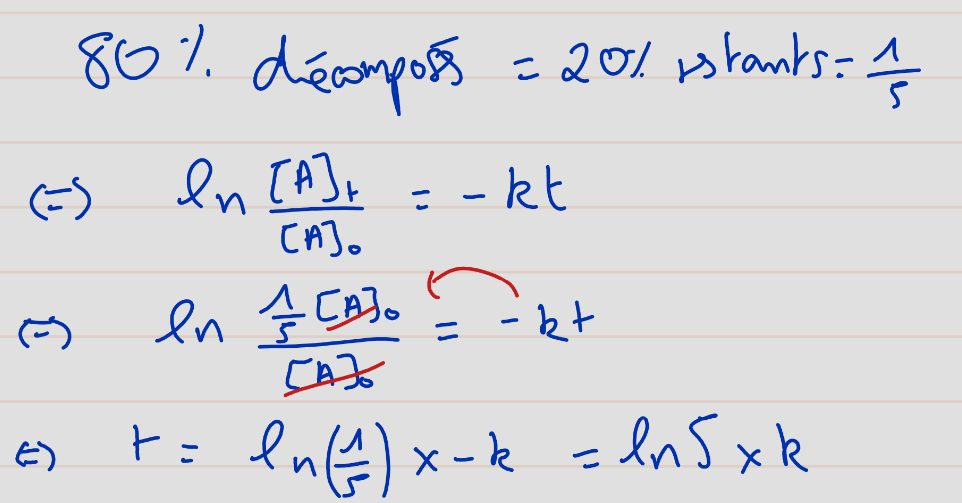 80% décomposés = 20% restants = 1/5
(=) ln [A]t/[A]₀ = - kt
(=) ln 1/5 [A]₀/[A]₀ = - kt
(=) t = ln(1/5) x - k = ln5 x k